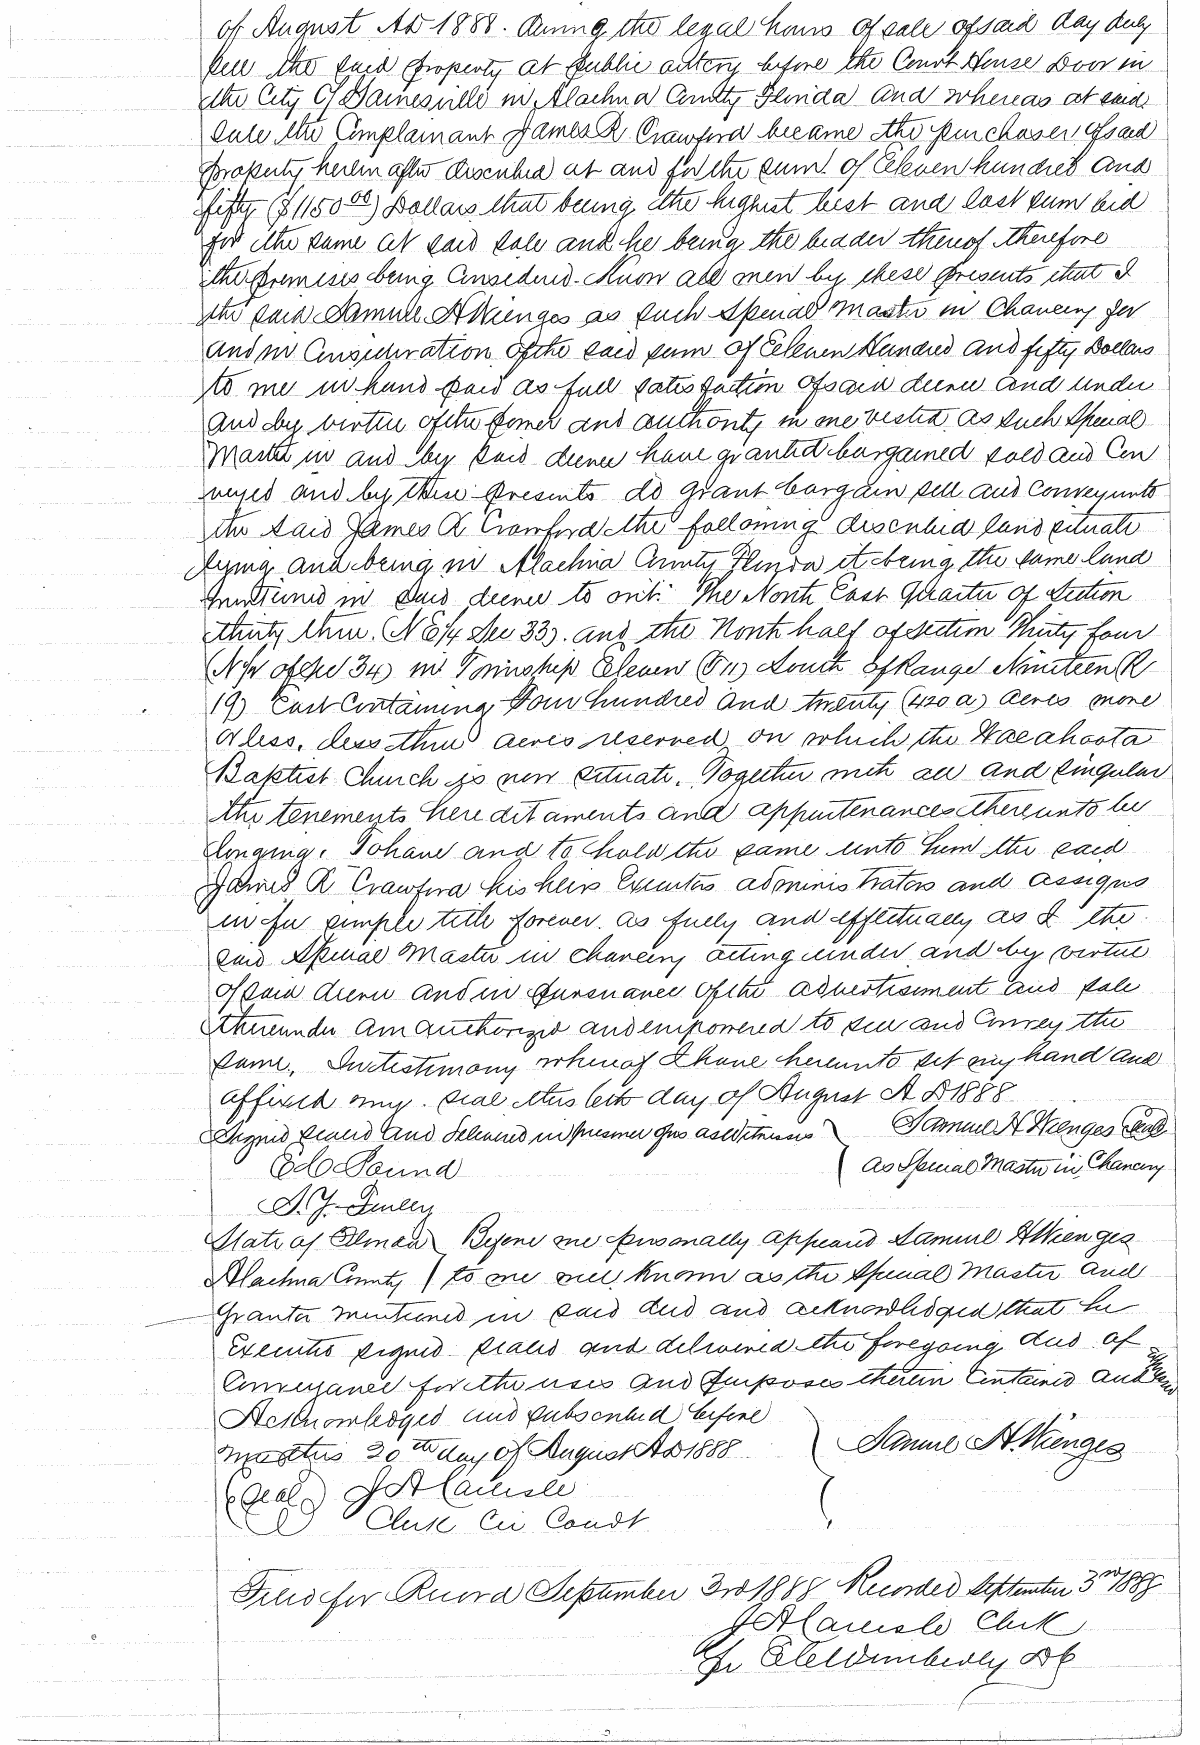 of August AD 1888. during the legal hours of sale of said day duly
sell the said property at public outcry before the Court House Door in
the City of Gainesville in Alachua County Florida and whereas at said
sale the Complainant James R Crawford became the purchaser of said
property herein after described at and for the sum of Eleven hundred and
fifty ($1150 00) Dollars that being the highest best and last sum bid
for the same at said sale and he being the bidder thereof therefore
the premises being Considered. Know all men by these presents that I
the said Samuel H Wienges as such Special Master in Chancery for
and in Consideration of the said sum of Eleven Hundred and fifty Dollars
to me in hand paid as full satisfaction of said decree and under
and by virtue of the power and authority in me vested as such Special
Master in and by said decree have granted bargained sold and Con
veyed and by these presents do grant bargain sell and Convey unto
the said James R Crawford the following described land situate
lying and being in Alachua County Florida it being the same land
mentioned in said decree to wit: The North East Quarter of Section
thirty three. (NE 1/4 Sec 33). and the North half of Section Thirty four
(N 1/2 of Sec 34) in Township Eleven (T 11) South of Range Nineteen (R
19) East Containing Four hundred and twenty (420 a) acres more
or less, less three acres reserved on which the Wacahoota
Baptist Church is now situate. Together with all and singular
the tenements hereditaments and appurtenances thereunto be
longing. To have and to hold the same unto him the said
James R Crawford his heirs Executors administrators and assigns
in fee simple title forever. as fully and effectually as I the
said Special Master in Chancery acting under and by virtue
of said decree and in pursuance of the advertisement and sale
thereunder am authorized and empowered to sell and Convey the
same. In testimony whereof I have hereunto set my hand and
affixed my seal this 6th day of August A D 1888
Signed sealed and delivered in presence of us as witnesses Samuel H Wienges (Seal)
E C Pound as Special Master in Chancery
S. Y. Finley
State of Florida Before me personally appeared Samuel H Wienges
Alachua County to me well known as the Special Master and
Grantor mentioned in said deed and acknowledged that he
Executed signed sealed and delivered the foregoing deed of
Conveyance for the uses and purposes therein Contained and
Acknowledged and subscribed before
me this 20th day of August AD 1888 Samuel H. Wienges
(Seal) J A Carlisle
Clerk Cir Court
Filed for Record September 3rd 1888 Recorded September 3rd 1888
J A Carlisle Clerk
Wimberly DC